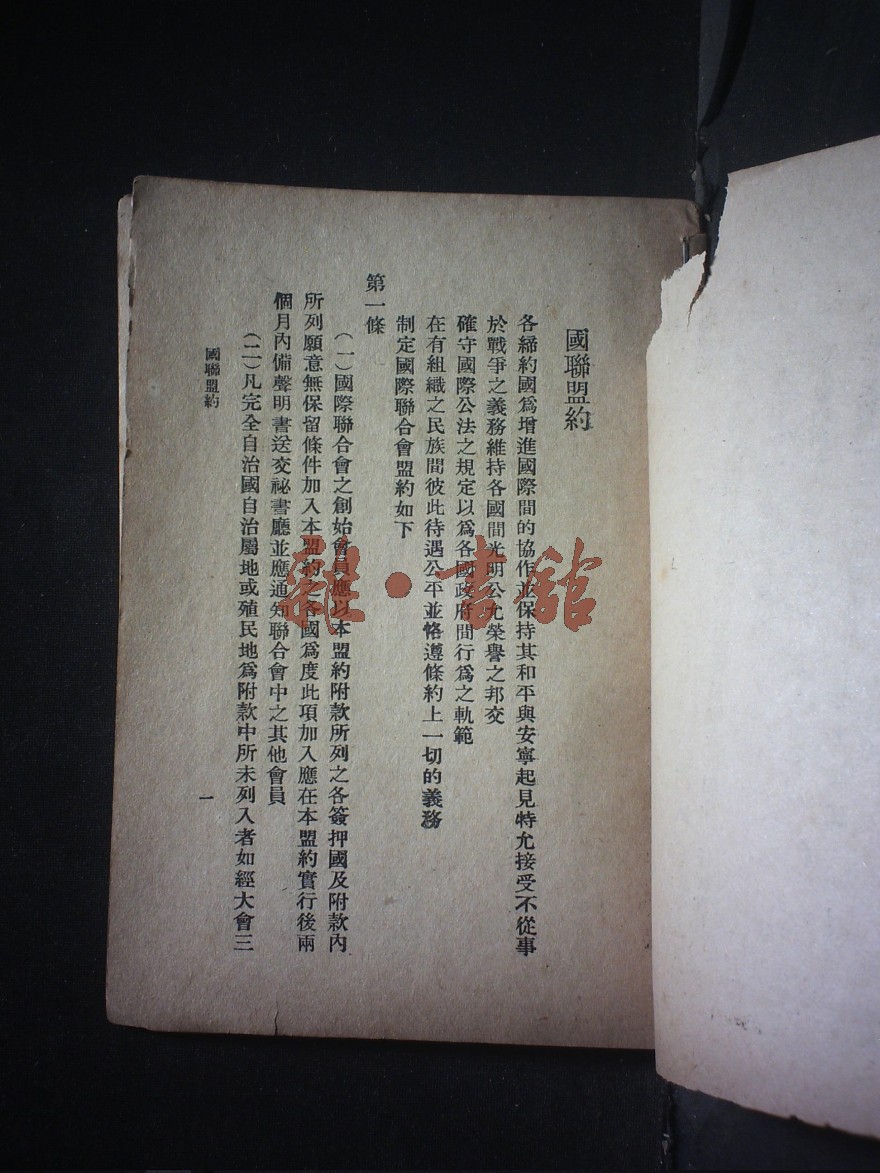 國聯盟約
各締約國爲增進國際間的協作並保持其和平與安寧起見特允接受不從事
於戰爭之義務維持各國間光明公允榮譽之邦交
確守國際公法之規定以爲各國政府間行爲之軌範
在有組織之民族間彼此待遇公平並恪遵條約上一切的義務
制定國際聯合會盟約如下
第一條
(一)國際聯合會之創始會員應以本盟約附款所列之各簽押國及附款內
所列願意無保留條件加入本盟約之各國爲度此項加入應在本盟約實行後兩
個月內備聲明書送交祕書廳並應通知聯合會中之其他會員
(二)凡完全自治國自治屬地或殖民地爲附款中所未列入者如經大會三
國聯盟約
一
雜·書館